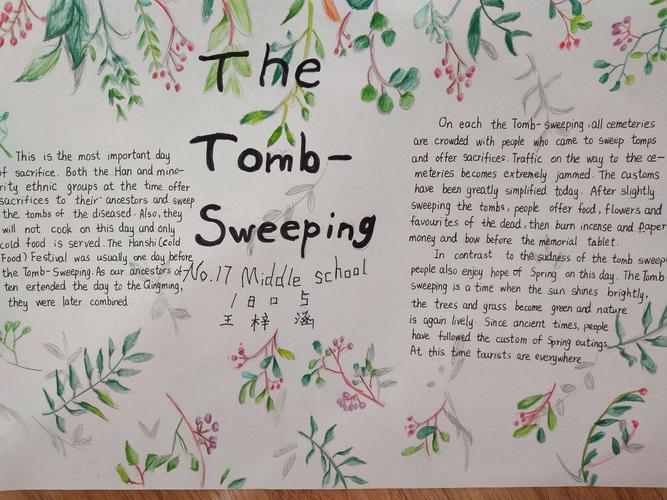 The
Tomb-
Sweeping
No.17 Middle school
王梓涵
This is the most important day
of sacrifice. Both the Han and mino-
rity ethnic groups at the time offer
sacrifices to their ancestors and sweep
the tombs of the diseased. Also, they
will not cook on this day and only
cold food is served. The Hanshi (cold
Food) Festival was usually one day before
the Tomb-Sweeping. As our ancestors of
ten extended the day to the Qingming,
they were later combined.
On each the Tomb-Sweeping, all cemeteries
are crowded with people who came to sweep tomps
and offer sacrifices. Traffic on the way to the ce-
meteries becomes extremely jammed. The customs
have been greatly simplified today. After slightly
sweeping the tombs, people offer food, flowers and
favourites of the dead, then burn incense and paper
money and bow before the memorial tablet.
In contrast to the sadness of the tomb sweep
people also enjoy hope of Spring on this day. The Tomb
sweeping is a time when the sun shines brightly,
the trees and grass become green and nature
is again lively. Since ancient times, people
have followed the custom of Spring outings.
At this time tourists are everywhere.